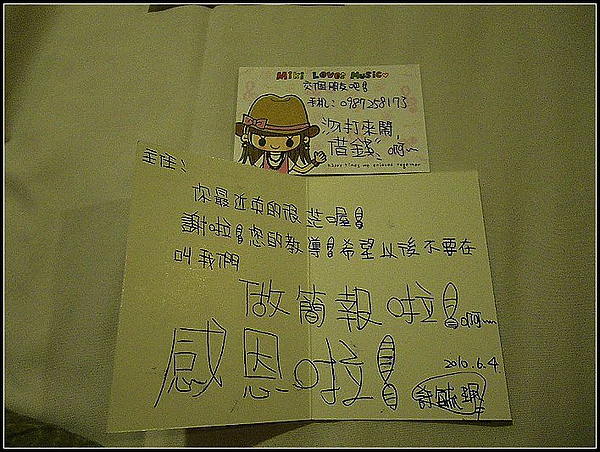 Miki Loves Music
交個朋友吧!
手机: 0987258173
勿打來鬧,
借錢! 啊~
Happy times we enjoyed together
主任:
你最近真的很忙喔!
謝啦!您的教導!希望以後不要在
叫我們
做簡報啦! 啊~
感恩啦!
2010.6.4.